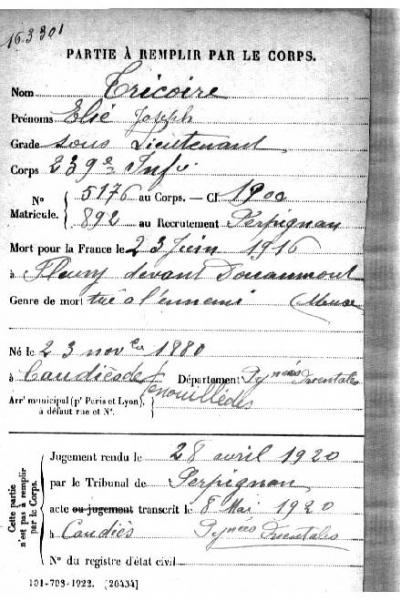 16.3301
PARTIE À REMPLIR PAR LE CORPS.
Nom Tricoire
Prénoms Elie Joseph
Grade Sous Lieutenant
Corps 239e Infie
N° Matricule. { 5176 au Corps. — Cl. 1900
892 au Recrutement Perpignan
Mort pour la France le 23 Juin 1916
à Fleury devant Douaumont
Genre de mort tué à l'ennemi (Meuse
Né le 23 novbre 1880
à Caudiès de Fenouillèdes Département Pynées Orientales
Arrt municipal (pr Paris et Lyon), à défaut rue et N°.
Cette partie n'est pas à remplir par le Corps.
Jugement rendu le 28 avril 1920
par le Tribunal de Perpignan
acte ou jugement transcrit le 8 Mai 1920
à Caudiès Pynées Orientales
N° du registre d'état civil
101-708-1922. [20434]